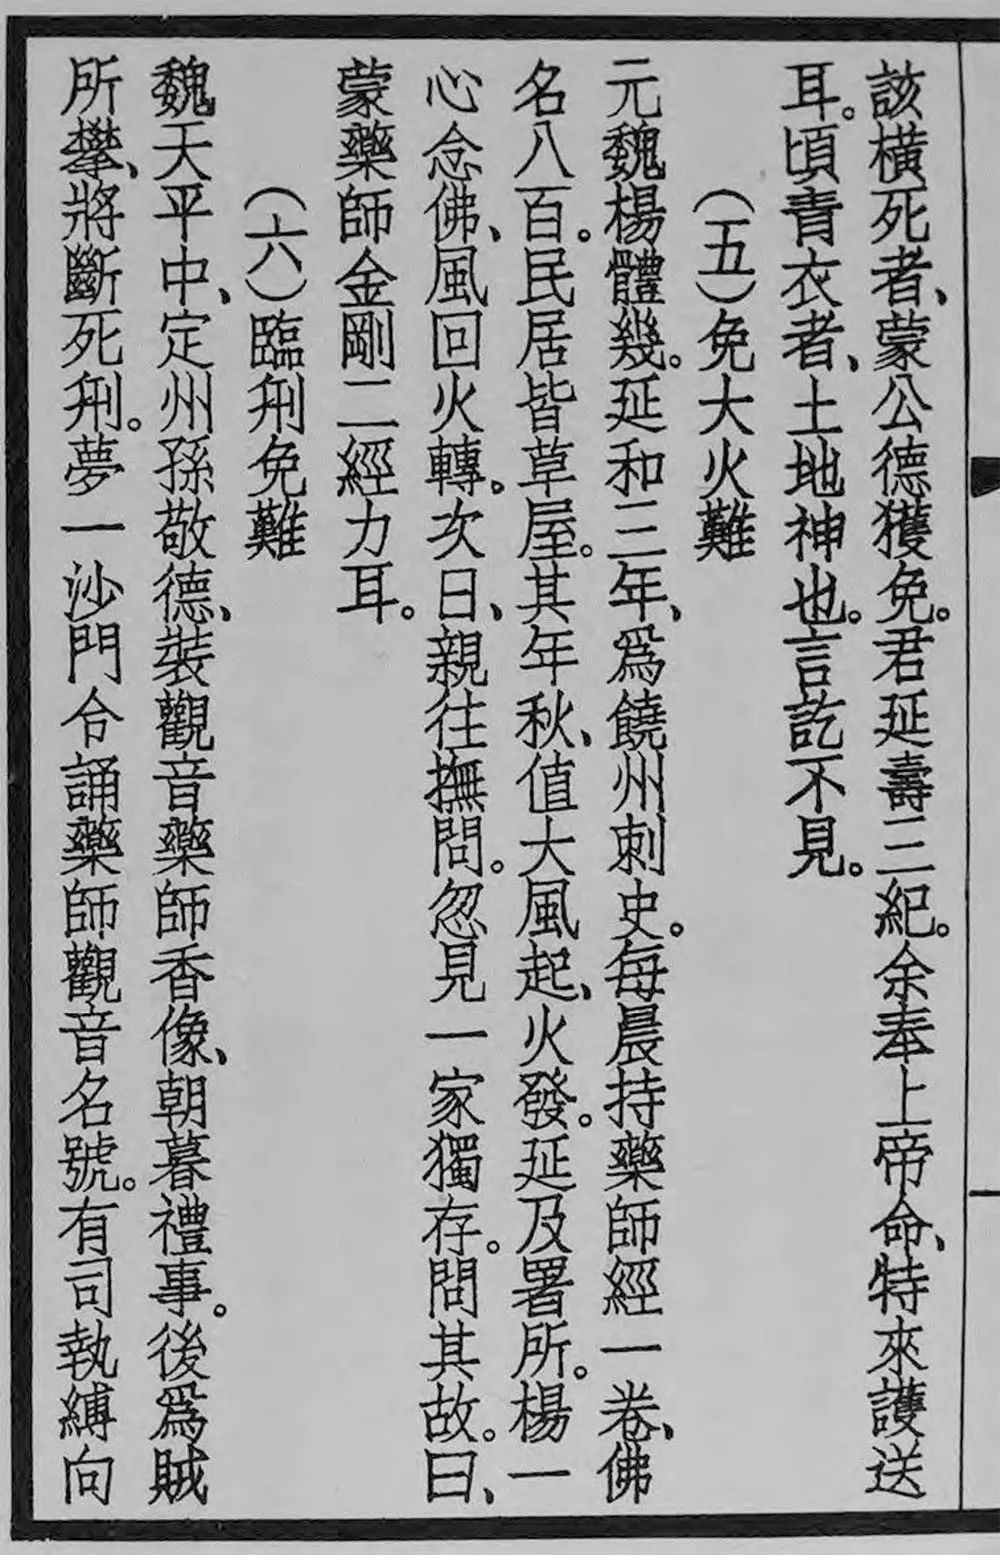 該橫死者、蒙公德獲免。君延壽三紀。余奉上帝命、特來護送
耳。頃青衣者、土地神也。言訖不見。
(五)免大火難
元魏楊體幾。延和三年、爲饒州刺史。每晨持藥師經一卷、佛
名八百。民居皆草屋。其年秋、值大風起、火發。延及署所。楊一
心念佛、風回火轉。次日、親往撫問。忽見一家獨存。問其故。曰、
蒙藥師金剛二經力耳。
(六)臨刑免難
魏天平中、定州孫敬德、裝觀音藥師香像、朝暮禮事。後爲賊
所攀、將斷死刑。夢一沙門令誦藥師觀音名號。有司執縛向